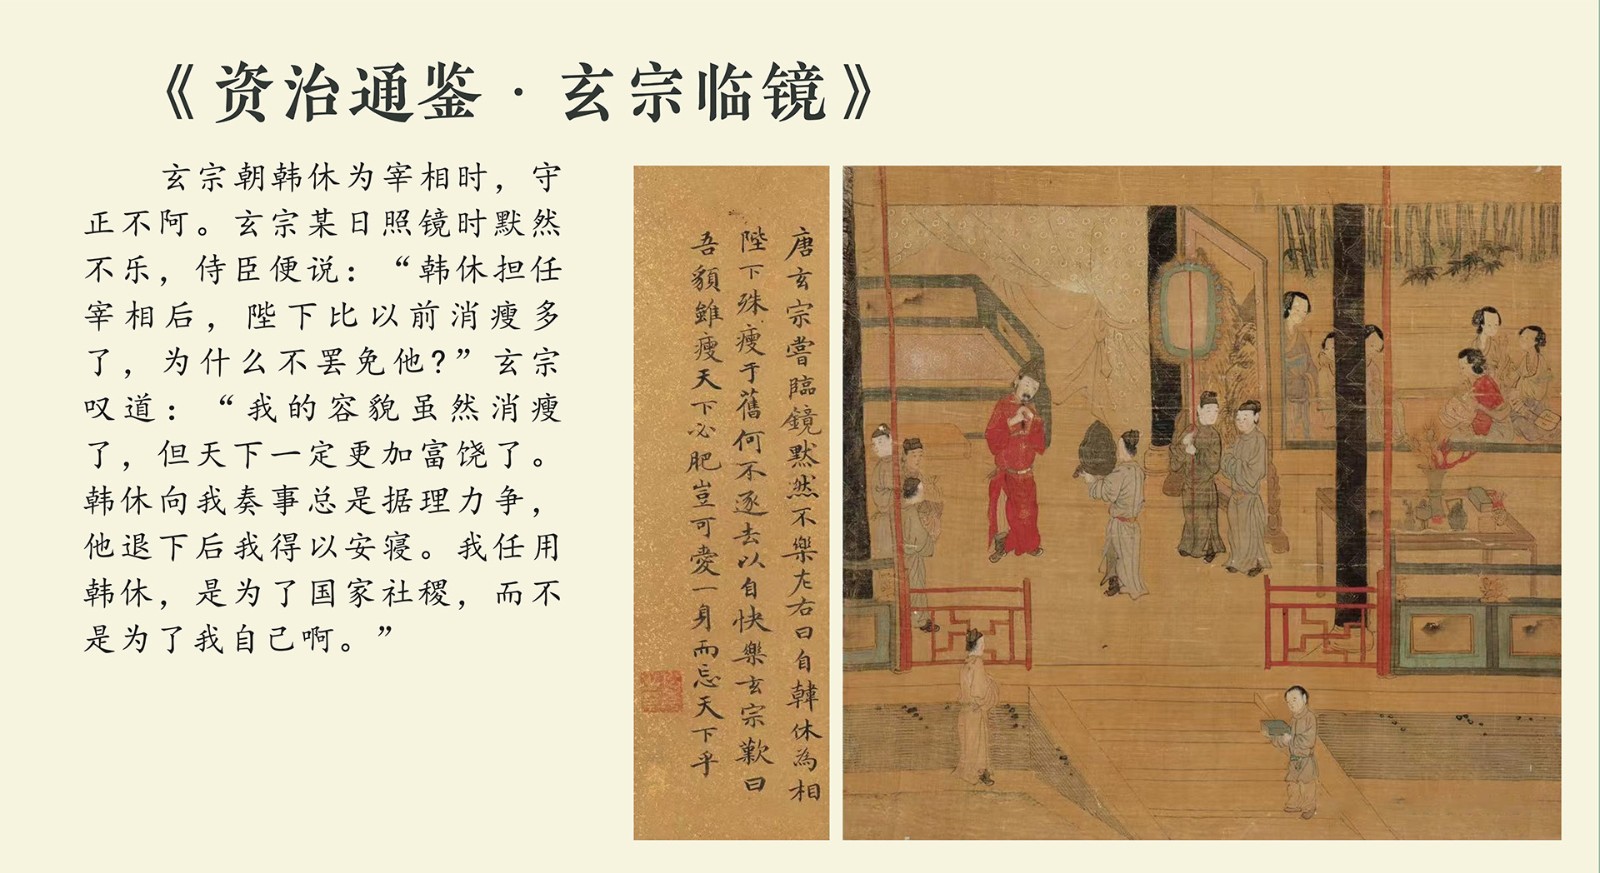 《资治通鉴·玄宗临镜》
玄宗朝韩休为宰相时，守
正不阿。玄宗某日照镜时默然
不乐，侍臣便说：“韩休担任
宰相后，陛下比以前消瘦多
了，为什么不罢免他?”玄宗
叹道：“我的容貌虽然消瘦
了，但天下一定更加富饶了。
韩休向我奏事总是据理力争，
他退下后我得以安寝。我任用
韩休，是为了国家社稷，而不
是为了我自己啊。”
唐玄宗嘗臨鏡默然不樂左右曰自韓休為相
陛下殊瘦于舊何不逐去以自快樂玄宗歎曰
吾貌雖瘦天下必肥豈可愛一身而忘天下乎